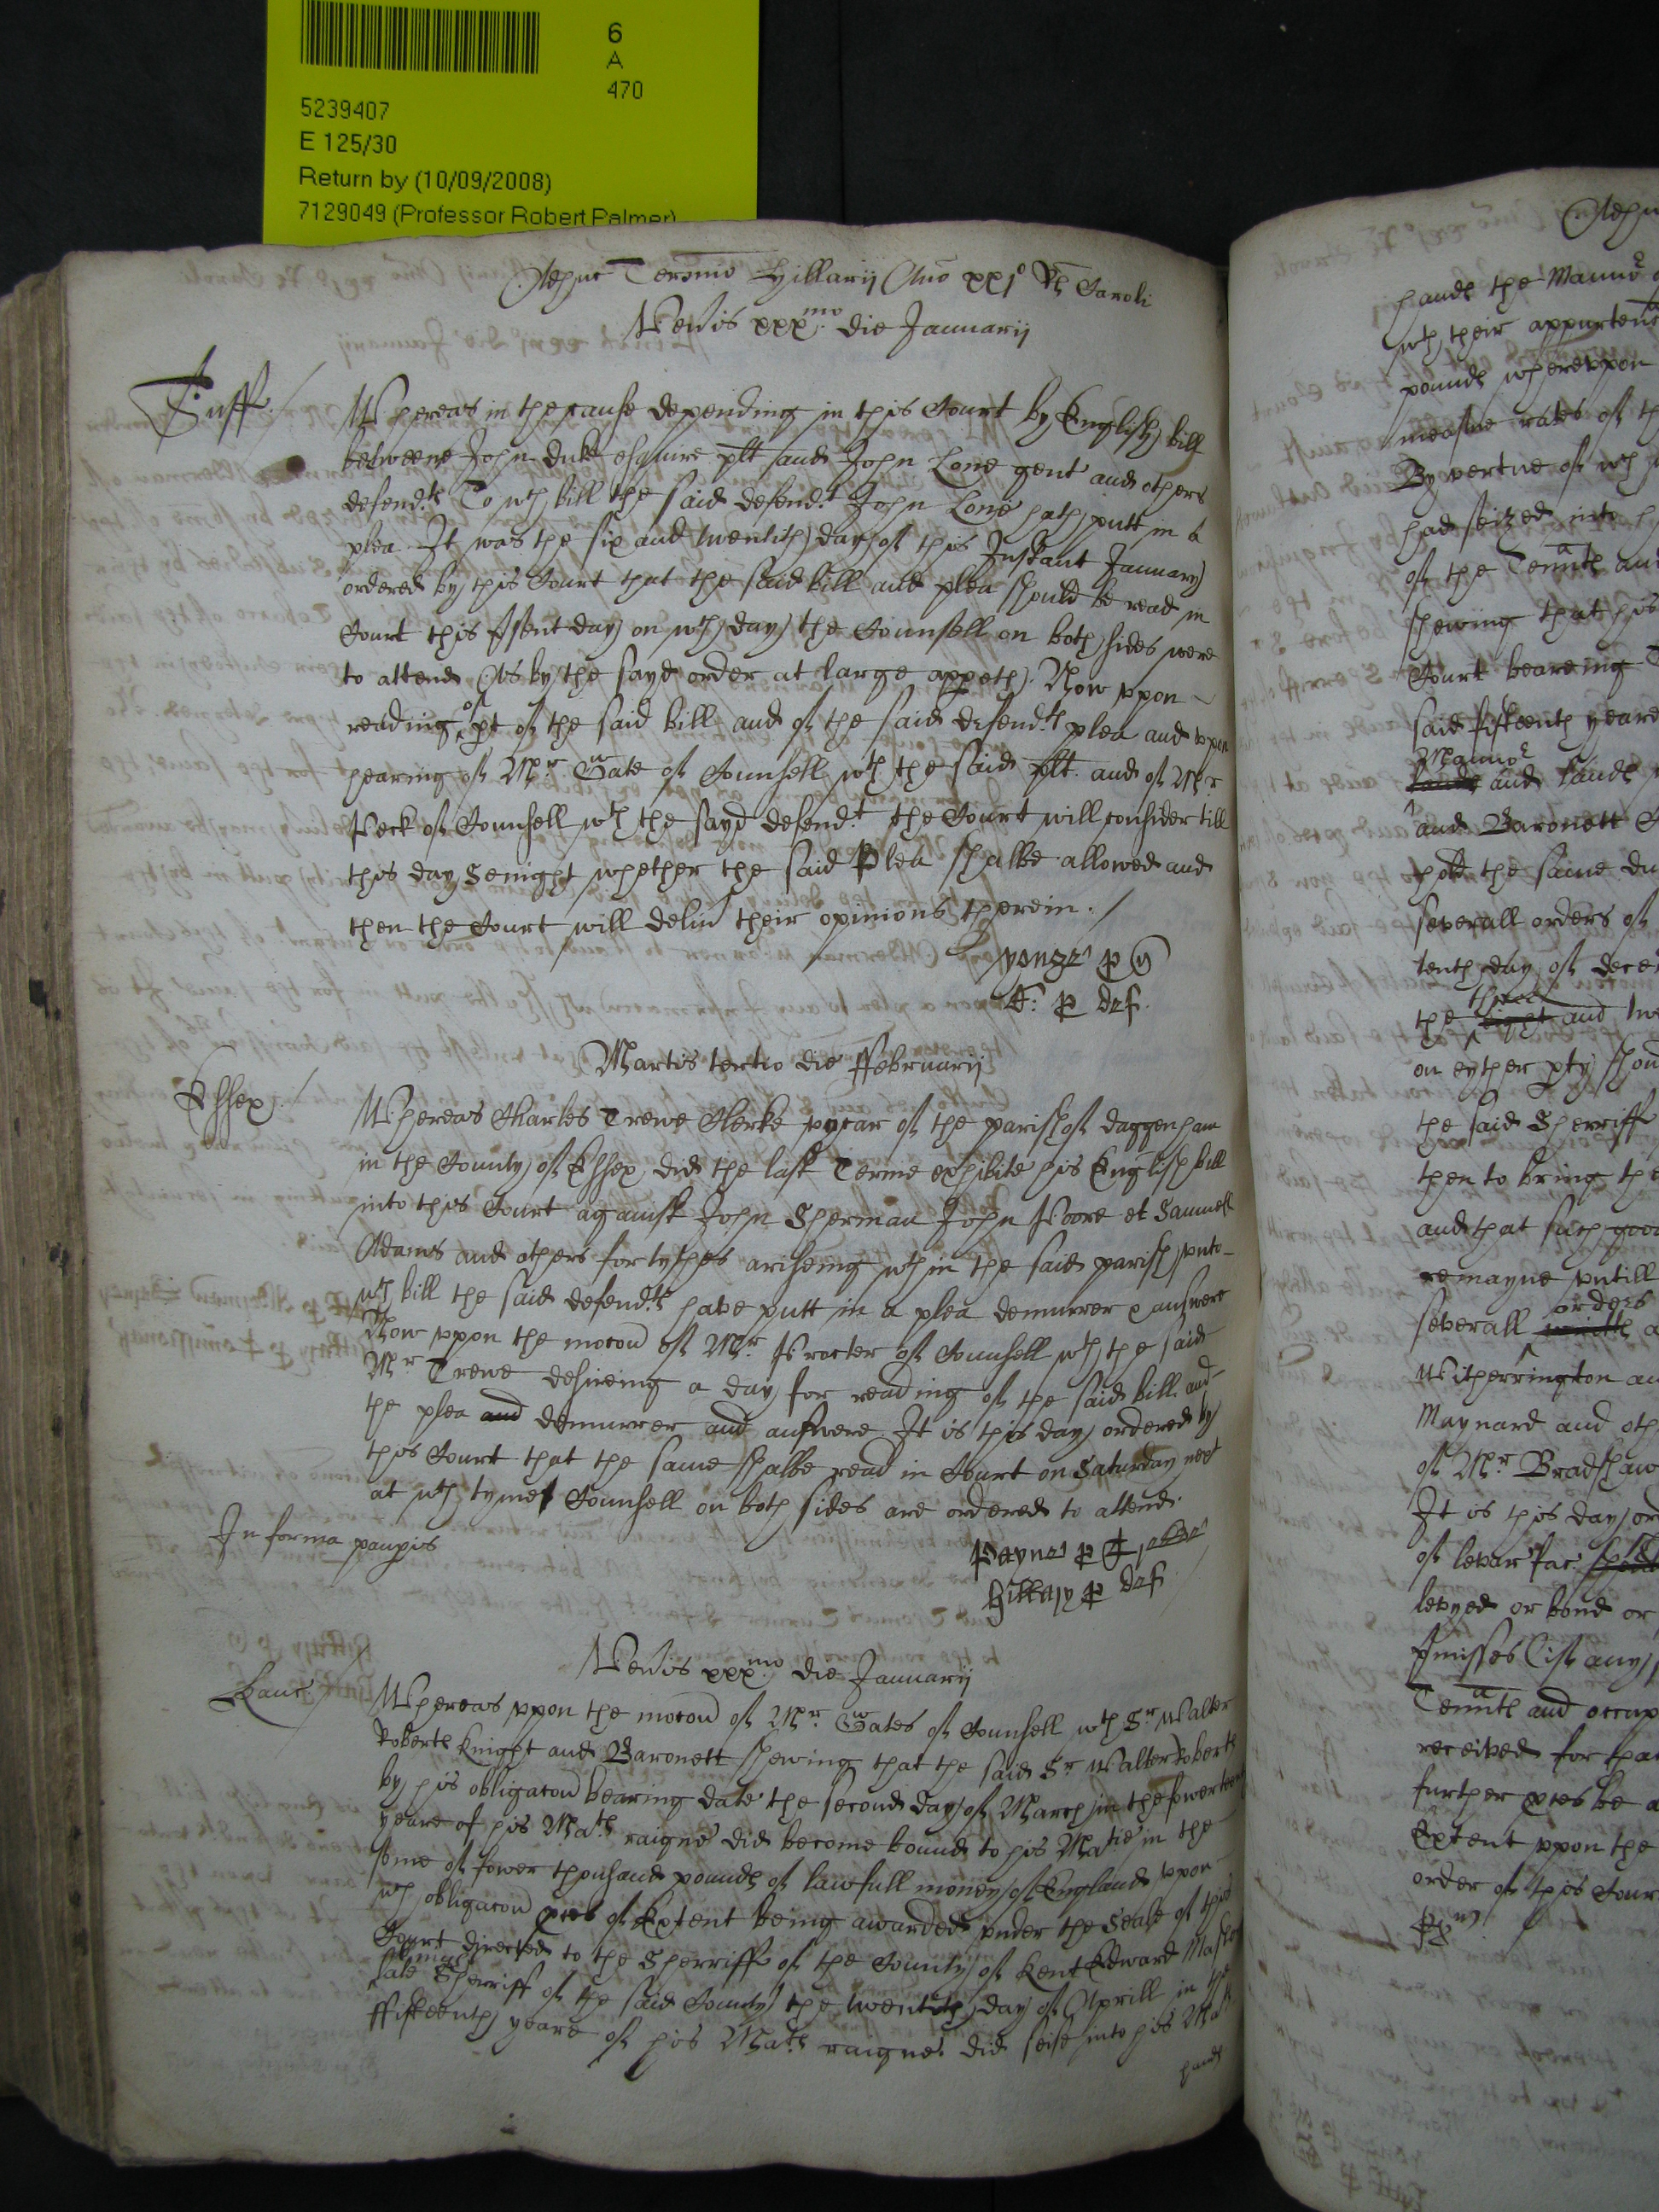 6
A
470
5239407
E 125/30
Return by (10/09/2008)
7129049 (Professor Robert Palmer)
Adhuc Termino Hillarij Anno xxj° Rs Caroli
Veñis xxx.mo die Januarij
Suff.
Whereas in the cause depending in this Court by English bill
betweene John Duke esquire plt and John Lone gent and others
defend.ts To wch bill the said defend.t John Lone hath putt in a
plea It was the six and twentith day of this Instant January
ordered by this Court that the said bill and plea should be read in
Court this psent day on wch day the Counsell on both sides were
to attend As by the sayd order at large appeth. Now vpon
reading of pt of the said bill and of the said defend.ts plea and vpon
hearing of Mr. Wate of Counsell wth the said plt and of Mr.
Peck of Counsell wth the sayd defend.t the Court will consider till
this day Senight whether the said Plea shalbe allowed and
then the Court will delivr their opinions therein. /
p def.
Martis tertio die ffebruarij
Essex.
Whereas Charles Trewe Clerke vycar of the parish of Daggenham
in the County of Essex did the last Terme exhibite his English bill
into this Court against John Sherman John Poore et Samuell
Adams and others for tythes ariseing wthin the said parish vnto
wch bill the said defend.ts have putt in a plea demurrer & answere
Now vpon the mocon of Mr. Procter of Counsell wth the said
Mr Trewe desireing a day for reading of the said bill and
the plea and demurrer and answere It is this day ordered by
this Court that the same shalbe read in Court on Saturday next
at wch tyme Counsell on both sides are ordered to attend.
In forma paupis
Payne p Q
Hillary p def.
Veñis xxx.mo die Januarij
Kanc
Whereas vpon the mocon of Mr. Wates of Counsell wth Sr Walter
Roberts Knight and Baronett shewing that the said Sr Walter Roberts
by his obligacon bearing date the second day of March in the fowerteenth
yeare of his Mats raigne did become bound to his Matie in the
some of fower thousand pounds of lawfull money of England vpon
wch obligacon pces of Extent being awarded vnder the Seale of this
Court directed to the Sherriffe of the County of Kent Edward Master
late Sherriff of the said County the twentith day of Aprill in the
ffifteenth yeare of his Mats raigne did seise into his Mats
hands
Adhuc
hands the Mannor
wth their appurtenn
pounds wherevpon
meane rates of th
By vertue of wch
had seized into h
of the Tennts and
shewing that his
Court beareing
said fifteenth yeare
Mannor
lands and lands
and Baronett
hold the same du
severall orders of
tenth day of Decem
three
the eight and twe
on eyther pty shou
the said Sherriffe
then to bring the
and that such good
remayne vntill
orders
severall writts a
Witherrington an
Maynard and oth
of Mr. Bradshaw
It is this day ord
of levar fac
levyed or bond or
pmisses (if any)
Tennts and occup
received for that
further pces be a
Extent vpon the
order of this Cour